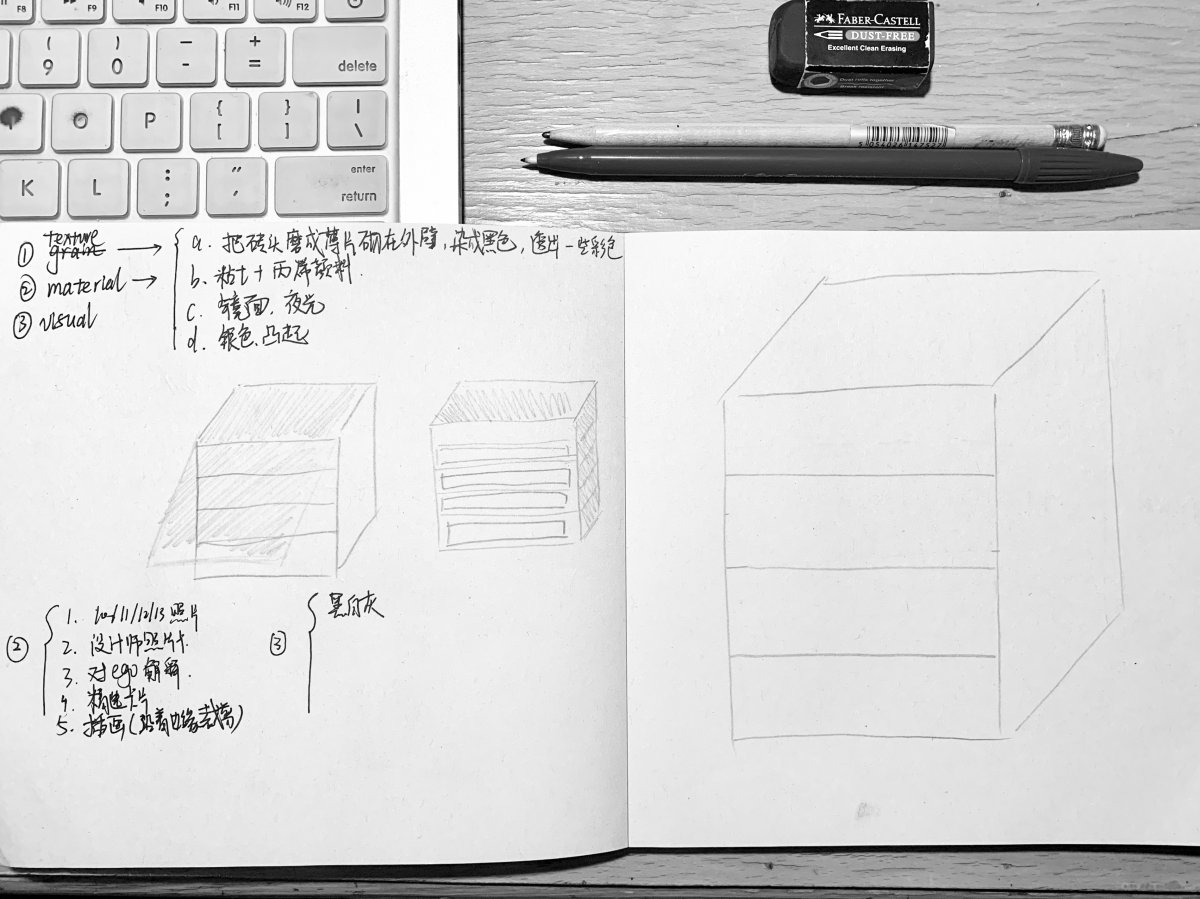 F8 F9 F10 F11 F12
( 9 ) 0 - + = delete
O P { [ } ] | \
K L : ; " ' enter return
FABER-CASTELL
DUST-FREE
Excellent Clean Erasing
Dust rolls together
Break resistant
5 054026 147527
① texture
grant
② material
③ visual
a. 把砖头磨成薄片砌在外壁，染成黑色，透出一些彩色
b. 粘土+丙烯颜料.
c. 镜面，夜光
d. 银色、凸起
②
1. 10/11/12/13 照片
2. 设计师照片.
3. 对ego解释.
4. 卡片
5. 插画(沿着边缘裁剪)
③ 黑白灰